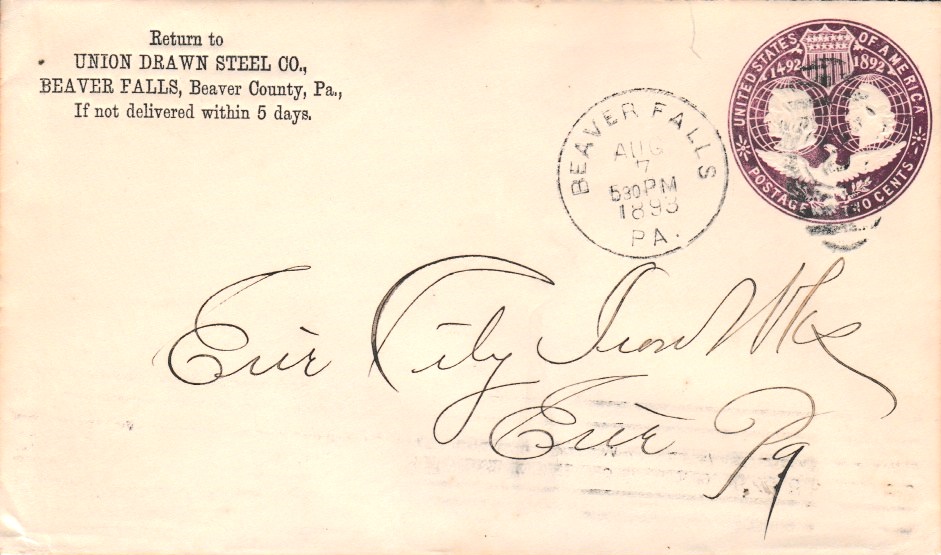 Return to
UNION DRAWN STEEL CO.,
BEAVER FALLS, Beaver County, Pa.,
If not delivered within 5 days.
BEAVER FALLS
AUG
7
530PM
1893
PA.
UNITED STATES OF AMERICA
1492 1892
POSTAGE TWO CENTS
Erie City Iron Wks
Erie Pa